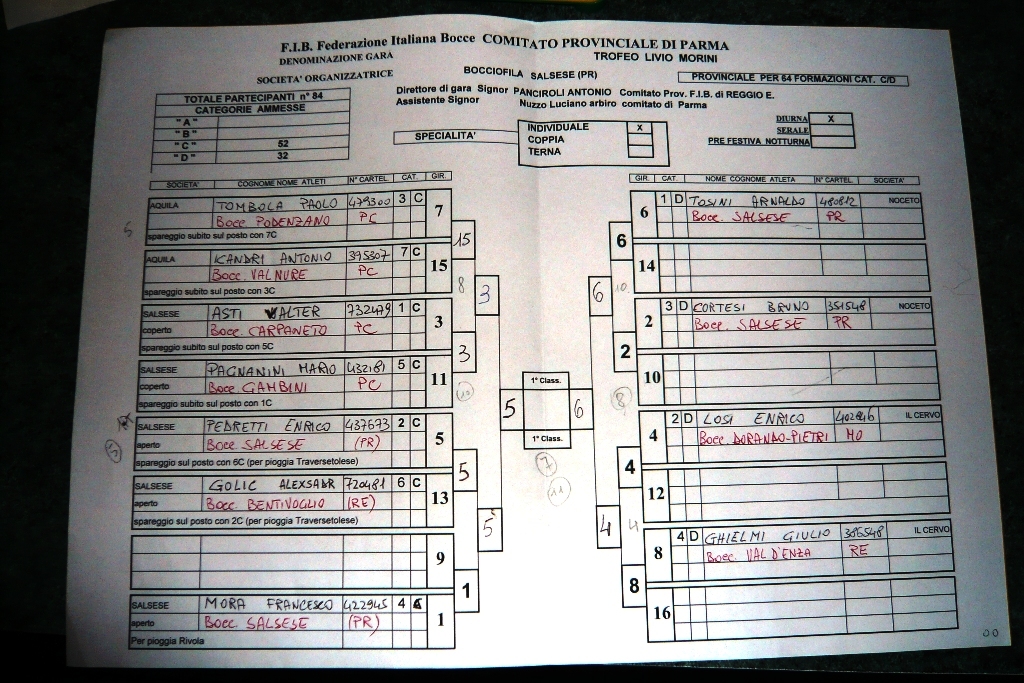 F.I.B. Federazione Italiana Bocce COMITATO PROVINCIALE DI PARMA
DENOMINAZIONE GARA TROFEO LIVIO MORINI
SOCIETA' ORGANIZZATRICE BOCCIOFILA SALSESE (PR) PROVINCIALE PER 64 FORMAZIONI CAT. C/D
Direttore di gara Signor PANCIROLI ANTONIO Comitato Prov. F.I.B. di REGGIO E.
Assistente Signor Nuzzo Luciano arbiro comitato di Parma
TOTALE PARTECIPANTI n° 84
CATEGORIE AMMESSE
"A"
"B"
"C" 52
"D" 32
SPECIALITA'
INDIVIDUALE X
COPPIA
TERNA
DIURNA X
SERALE
PRE FESTIVA NOTTURNA
SOCIETA' COGNOME NOME ATLETI N° CARTEL. CAT. GIR.
AQUILA TOMBOLA PAOLO 479300 3 C 7
Bocc. PODENZANO PC
spareggio subito sul posto con 7C
AQUILA ICANDRI ANTONIO 395307 7 C 15
Bocc. VALNURE PC
spareggio subito sul posto con 3C
SALSESE ASTI WALTER 732479 1 C 3
coperto Bocc. CARPANETO PC
spareggio subito sul posto con 5C
SALSESE PAGNANINI MARIO 432181 5 C 11
coperto Bocc GAMBINI PC
spareggio subito sul posto con 1C
SALSESE PEDRETTI ENRICO 437673 2 C 5
aperto Bocc SALSESE (PR)
spareggio sul posto con 6C (per pioggia Traversetolese)
SALSESE GOLIC ALEXSADR 720481 6 C 13
aperto Bocc BENTIVOGLIO (RE)
spareggio sul posto con 2C (per pioggia Traversetolese)
9
SALSESE MORA FRANCESCO 422945 4 C 1
aperto Bocc SALSESE (PR)
Per pioggia Rivola
15
8
3
3
10
5
5
1
1° Class.
5 6
1° Class.
7
11
GIR. CAT. NOME COGNOME ATLETA N° CARTEL. SOCIETA'
6 1 D TOSINI ARNALDO 480812 NOCETO
Bocc. SALSESE PR
14
2 3 D CORTESI BRUNO 351548 NOCETO
Bocc. SALSESE PR
10
4 2 D LOSI ENRICO 402846 IL CERVO
Bocc. DORANDO-PIETRI MO
12
8 4 D GHIELMI GIULIO 395548 IL CERVO
Bocc. VAL D'ENZA RE
16
6
6
10
2
8
4
4
4
8